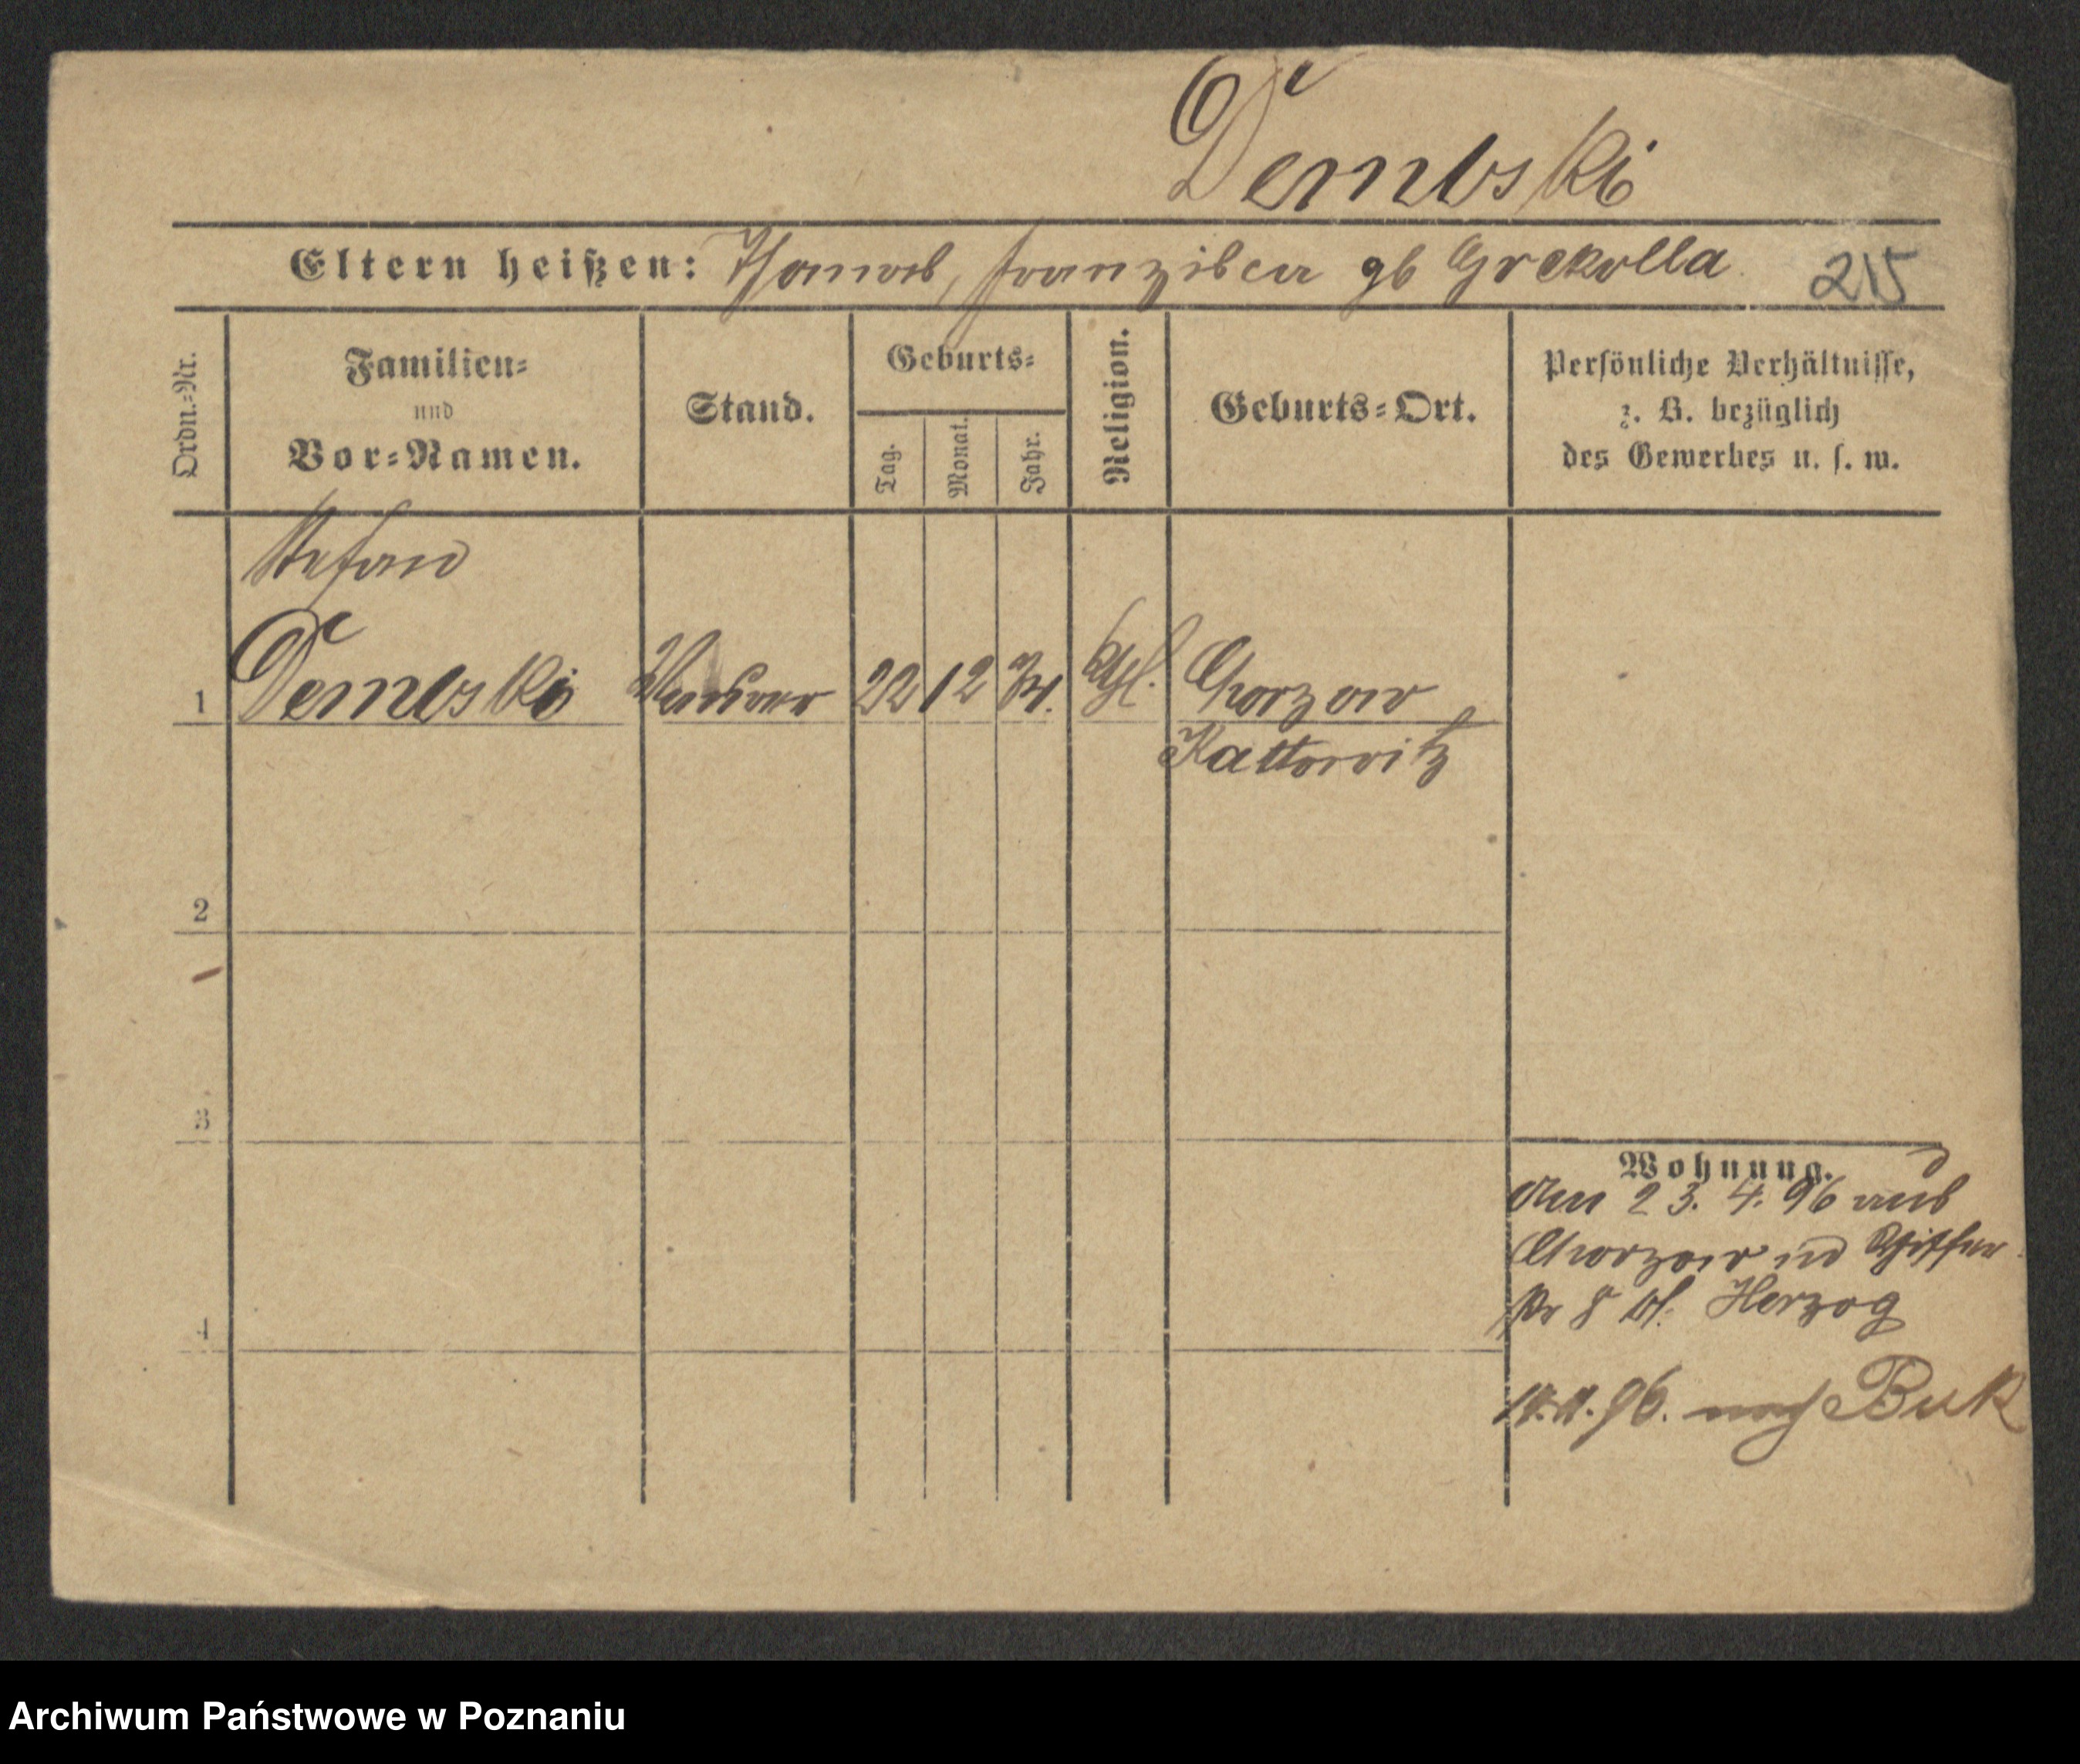 Dembski
Eltern heißen: Thomas, Franziska gb Grekolla 215
Ordn.-Nr.
Familien-
und
Vor-Namen.
Stand.
Geburts-
Tag.
Monat.
Jahr.
Religion.
Geburts-Ort.
Persönliche Verhältnisse,
z. B. bezüglich
des Gewerbes u. s. w.
Stefan
1 Dembski 22 12 74. kthl. Chorzow
Kattowitz
2
3
4
Wohnung.
Am 23. 4. 96 aus
Chorzow in
8 bl. Herzog
96. nach Buk
Archiwum Państwowe w Poznaniu